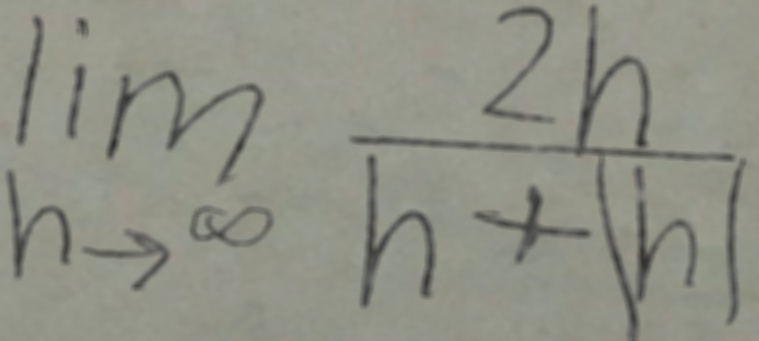 lim h→∞ 2h / h + |h|